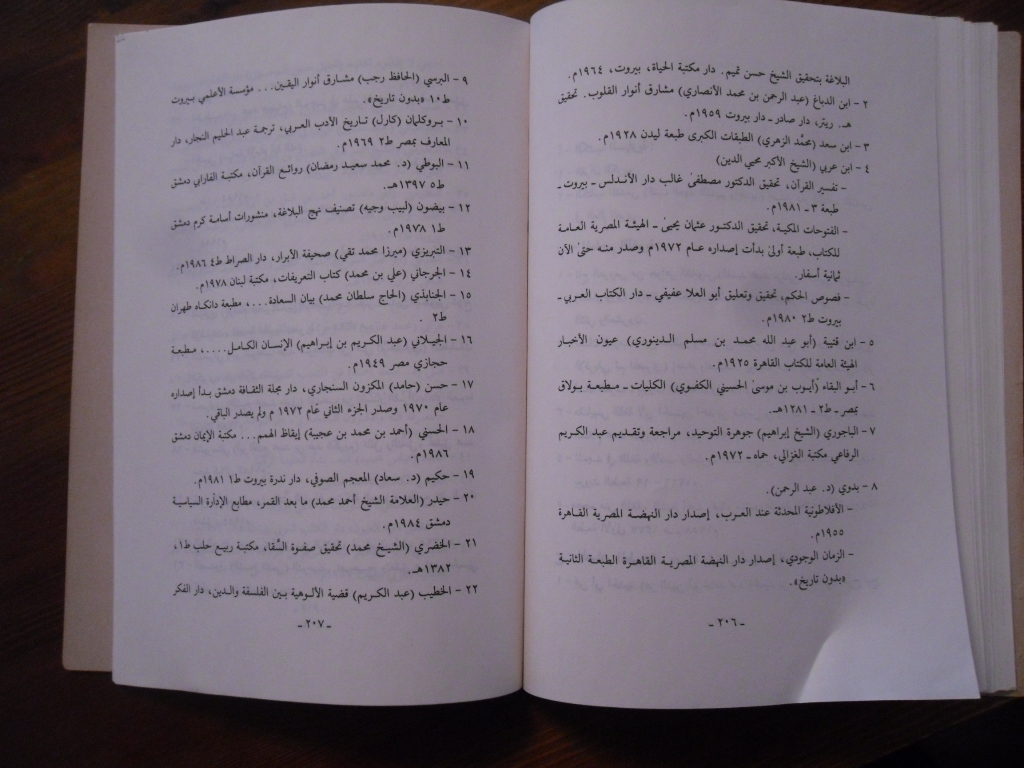 البلاغة بتحقيق الشيخ حسن تميم. دار مكتبة الحياة، بيروت، ١٩٦٤م.
٢ - ابن الدباغ (عبد الرحمن بن محمد الأنصاري) مشارق أنوار القلوب. تحقيق
هـ. ريتر، دار صادر - دار بيروت ١٩٥٩م.
٣ - ابن سعد (محمّد الزهري) الطبقات الكبرى طبعة ليدن ١٩٢٨م.
٤ - ابن عربي (الشيخ الأكبر محيي الدين)
- تفسير القرآن، تحقيق الدكتور مصطفى غالب دار الأندلس - بيروت -
طبعة ٣ - ١٩٨١م.
- الفتوحات المكية، تحقيق الدكتور عثمان يحيىٰ - الهيئة المصرية العامة
للكتاب، طبعة أولىٰ بدأت إصداره عام ١٩٧٢م وصدر منه حتىٰ الآن
ثمانية أسفار.
- فصوص الحكم، تحقيق وتعليق أبو العلا عفيفي - دار الكتاب العربي -
بيروت ط٢ ١٩٨٠م.
٥ - ابن قتيبة (أبو عبد الله محمد بن مسلم الدينوري) عيون الأخبار
الهيئة العامة للكتاب القاهرة ١٩٢٥م.
٦ - أبو البقاء (أيوب بن موسىٰ الحسيني الكفوي) الكليات - مطبعة بولاق
بمصر - ط٢ - ١٢٨١هـ.
٧ - الباجوري (الشيخ إبراهيم) جوهرة التوحيد، مراجعة وتقديم عبد الكريم
الرفاعي مكتبة الغزالي، حماه - ١٩٧٢م.
٨ - بدوي (د. عبد الرحمن).
- الأفلاطونية المحدثة عند العرب، إصدار دار النهضة المصرية القاهرة
١٩٥٥م.
- الزمان الوجودي، إصدار دار النهضة المصرية القاهرة الطبعة الثانية
«بدون تاريخ».
- ٢٠٦ -
٩ - البرسي (الحافظ رجب) مشارق أنوار اليقين... مؤسسة الأعلمي بيروت
ط١٠ «بدون تاريخ».
١٠ - بروكلمان (كارل) تاريخ الأدب العربي، ترجمة عبد الحليم النجار، دار
المعارف بمصر ط٢ ١٩٦٩م.
١١ - البوطي (د. محمد سعيد رمضان) روائع القرآن، مكتبة الفارابي دمشق
ط٥ ١٣٩٧هـ.
١٢ - بيضون (لبيب وجيه) تصنيف نهج البلاغة، منشورات أسامة كرم دمشق
ط١ ١٩٧٨م.
١٣ - التبريزي (ميرزا محمد تقي) صحيفة الأبرار، دار الصراط ط٤ ١٩٨٦م.
١٤ - الجرجاني (علي بن محمد) كتاب التعريفات، مكتبة لبنان ١٩٧٨م.
١٥ - الجنابذي (الحاج سلطان محمد) بيان السعادة...، مطبعة دانكاه طهران
ط٢ .
١٦ - الجيلاني (عبد الكريم بن إبراهيم) الإنسان الكامل....، مطبعة
حجازي مصر ١٩٤٩م.
١٧ - حسن (حامد) المكزون السنجاري، دار مجلة الثقافة دمشق بدأ إصداره
عام ١٩٧٠ وصدر الجزء الثاني عام ١٩٧٢ م ولم يصدر الباقي.
١٨ - الحسني (أحمد بن محمد بن عجيبة) إيقاظ الهمم... مكتبة الإيمان دمشق
١٩٨٦م.
١٩ - حكيم (د. سعاد) المعجم الصوفي، دار ندرة بيروت ط١ ١٩٨١م.
٢٠ - حيدر (العلامة الشيخ أحمد محمد) ما بعد القمر، مطابع الإدارة السياسية
دمشق ١٩٨٤م.
٢١ - الخضري (الشيخ محمد) تحقيق صفوة السّقا، مكتبة ربيع حلب ط١،
١٣٨٢هـ.
٢٢ - الخطيب (عبد الكريم) قضية الألوهية بين الفلسفة والدين، دار الفكر
- ٢٠٧ -